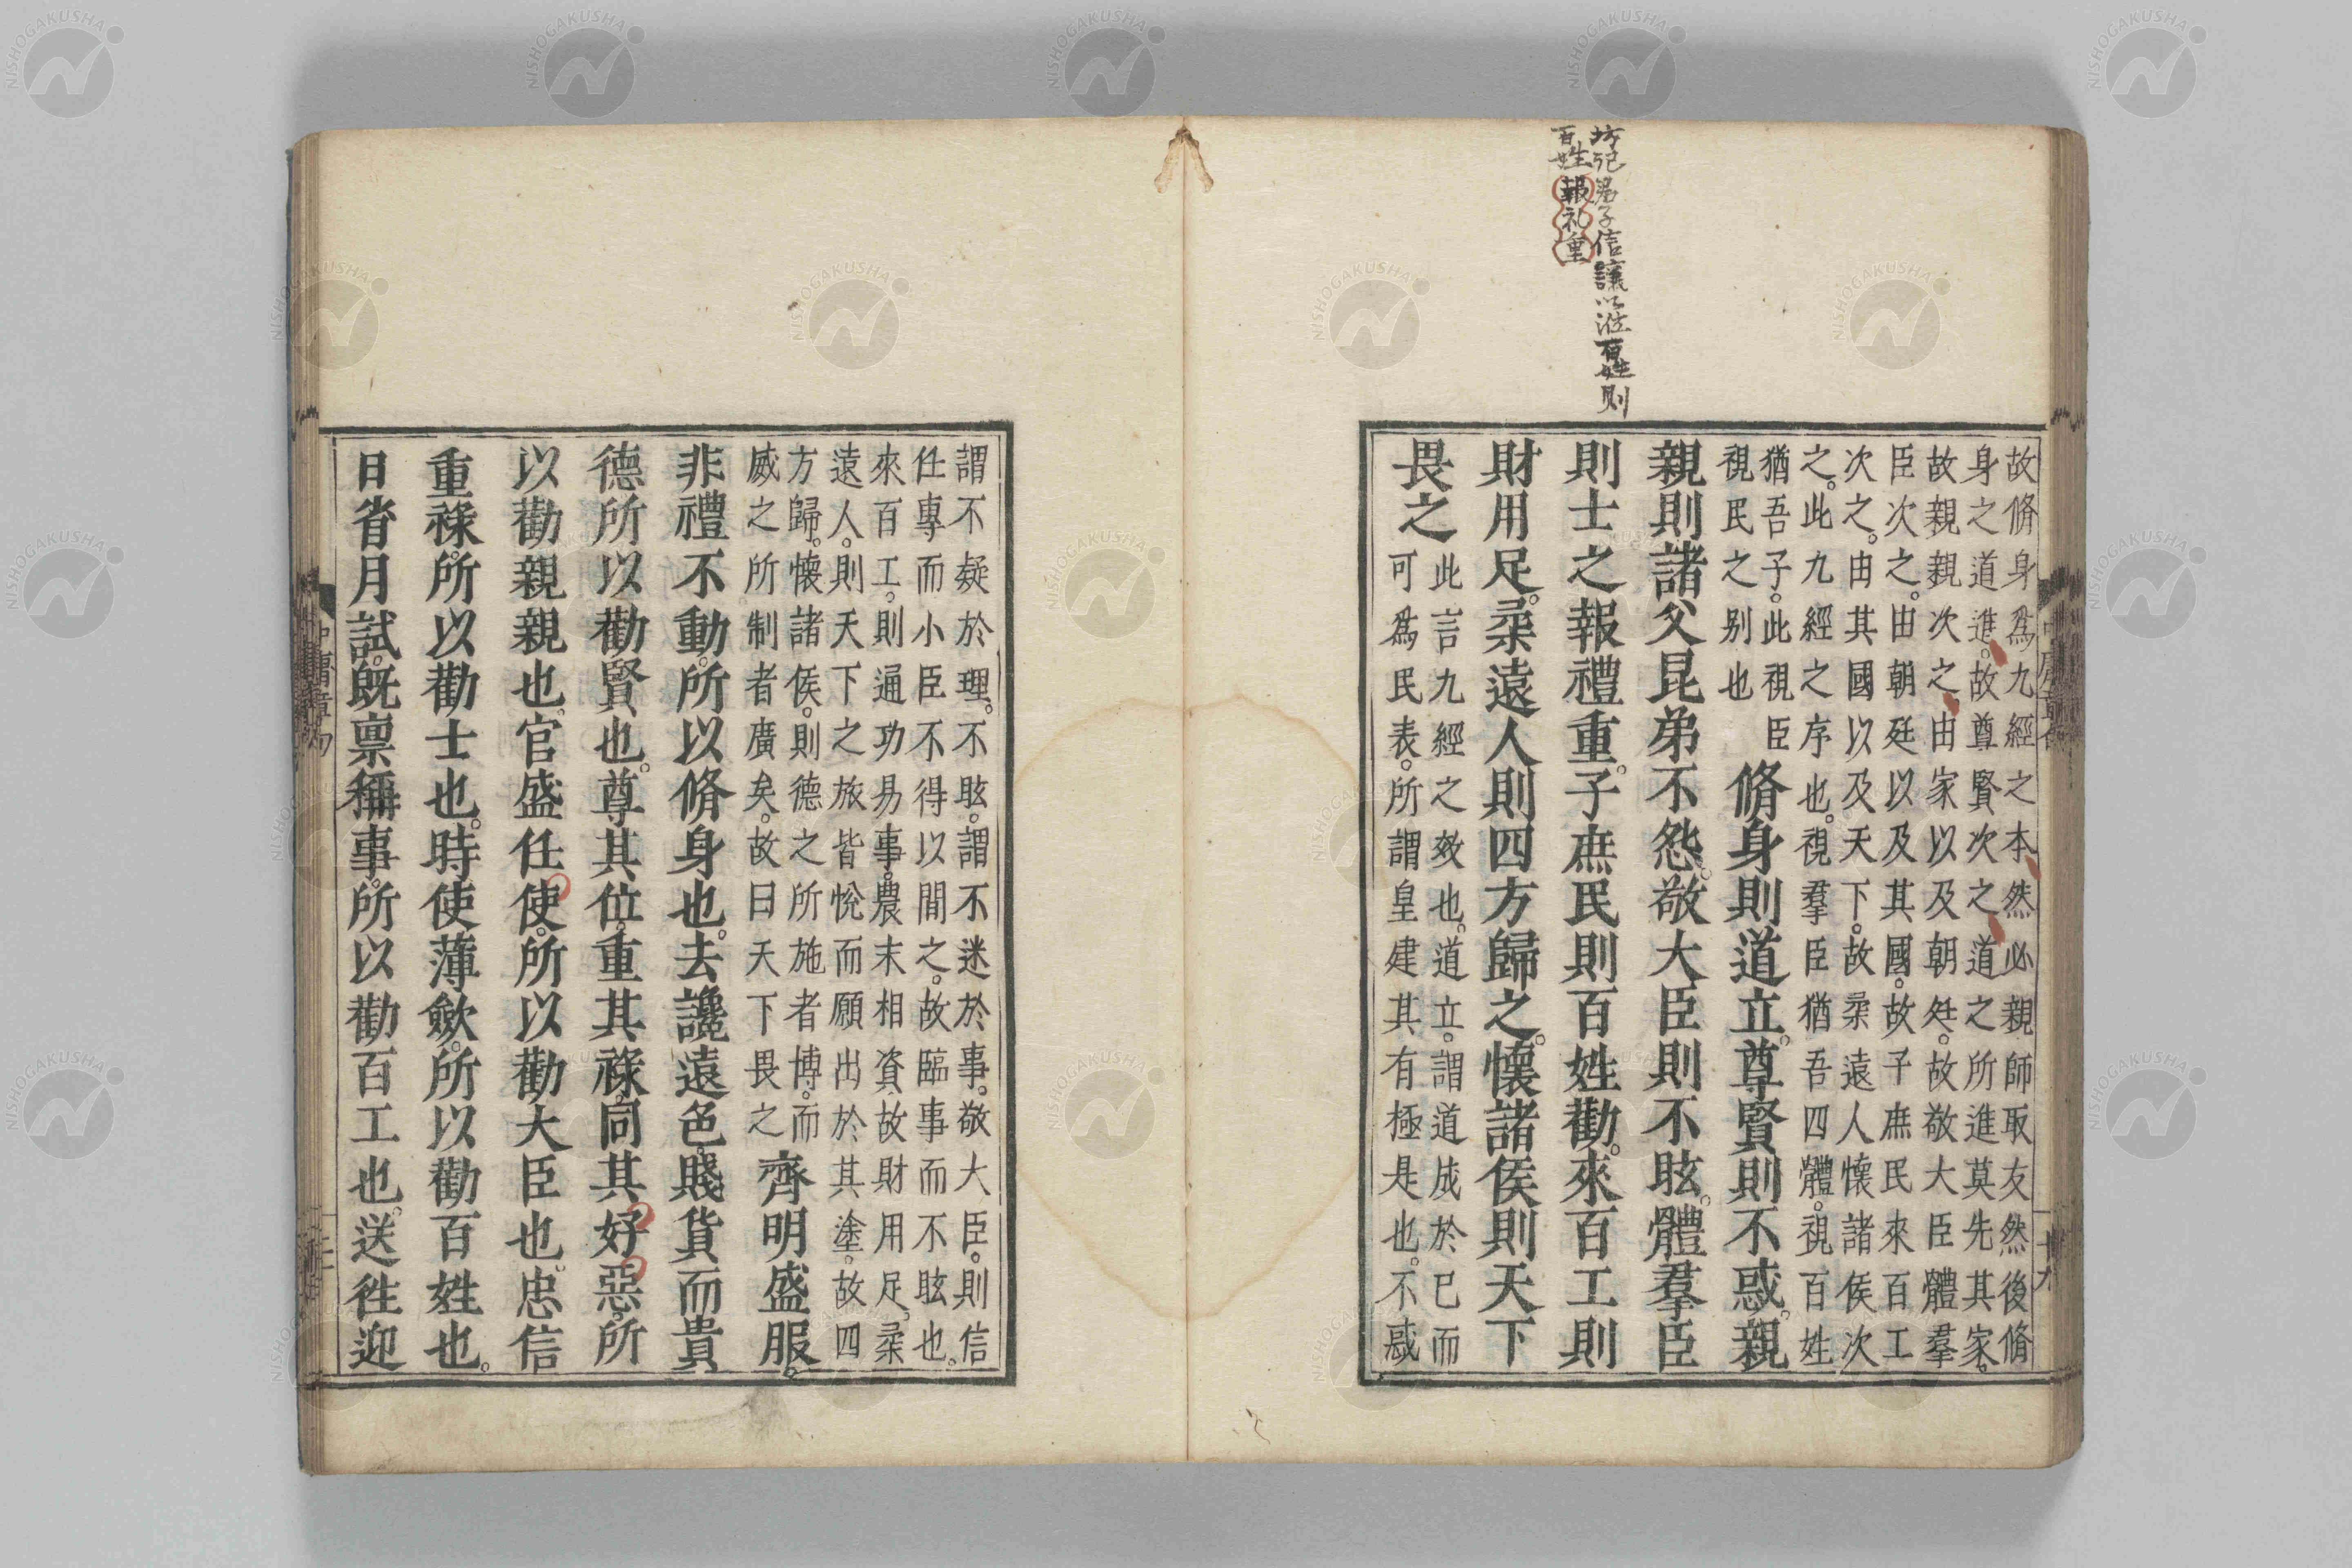 坊記君子信讓以涖百姓則
百姓報礼重
故脩身爲九經之本然必親師取友然後脩
身之道進。故尊賢次之道之所進莫先其家。
故親親次之由家以及朝廷。故敬大臣體羣
臣次之。由朝廷以及其國。故子庶民來百工
次之。由其國以及天下。故柔遠人懷諸侯次
之。此九經之序也。視羣臣猶吾四體。視百姓
猶吾子。此視臣
視民之别也
脩身則道立。尊賢則不惑。親
親則諸父昆弟不怨。敬大臣則不眩。體羣臣
則士之報禮重。子庶民則百姓勸。來百工則
財用足。柔遠人則四方歸之。懷諸侯則天下
畏之
此言九經之效也。道立。謂道成於已而
可爲民表。所謂皇建其有極是也。不惑
謂不疑於理。不眩。謂不迷於事。敬大臣。則信
任專而小臣不得以間之。故臨事而不眩也。
來百工。則通功易事。農末相資故財用足。柔
遠人。則天下之旅皆悅而願出於其塗。故四
方歸。懷諸侯。則德之所施者博。而
威之所制者廣矣。故曰天下畏之
齊明盛服。
非禮不動。所以脩身也。去讒遠色。賤貨而貴
德所以勸賢也。尊其位。重其祿。同其好惡。所
以勸親親也。官盛任使。所以勸大臣也。忠信
重祿。所以勸士也。時使薄歛。所以勸百姓也。
日省月試。旣稟稱事。所以勸百工也。送徃迎
中庸章句
十九
NISHOGAKUSHA